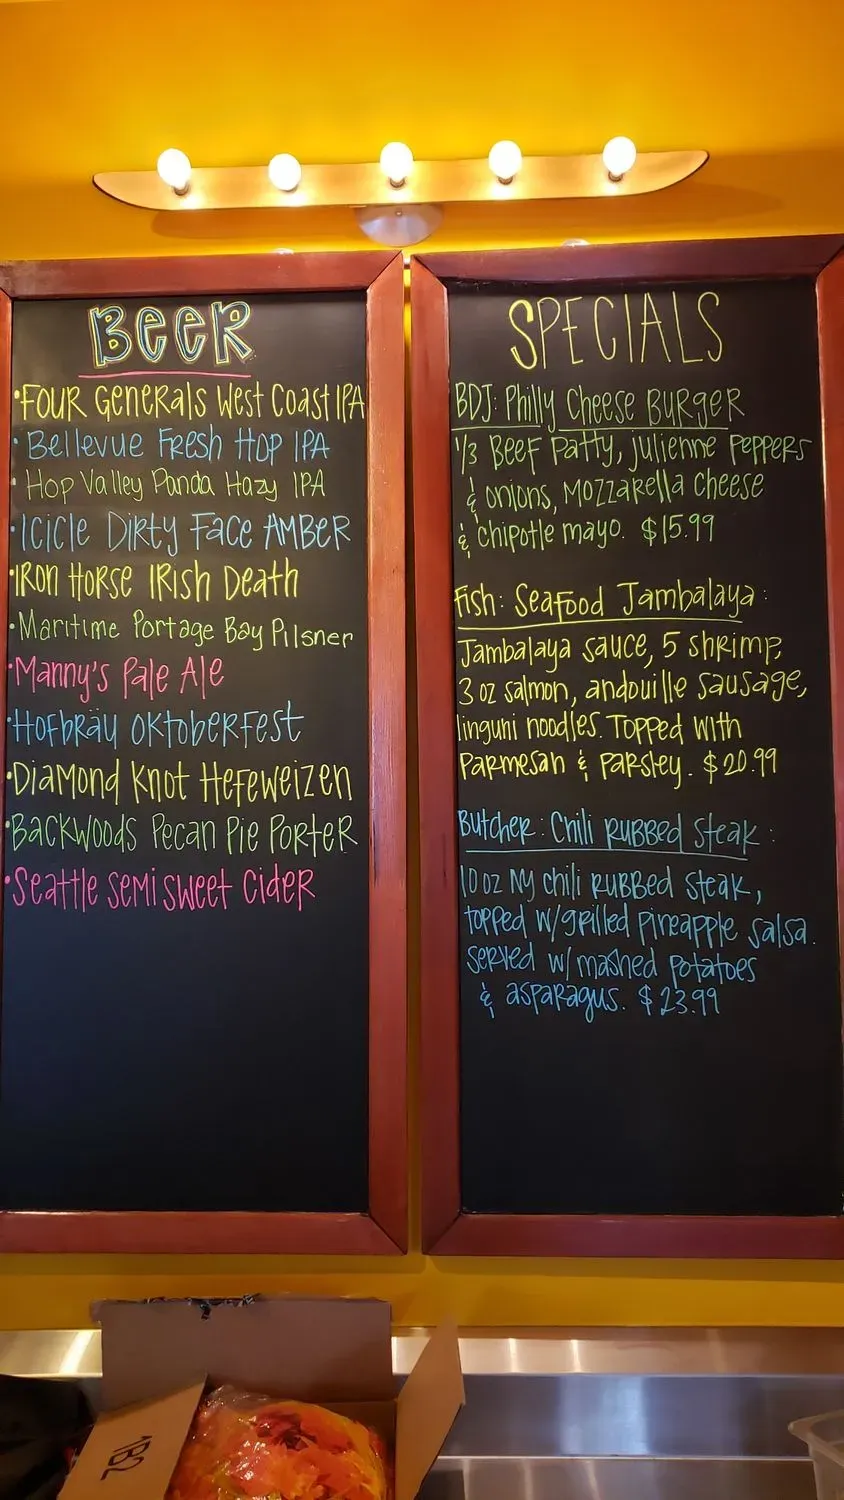 BEER
•FOUR GENERALS WEST COAST IPA
•Bellevue Fresh Hop IPA
•Hop Valley Panda Hazy IPA
•Icicle Dirty Face AMBER
•IRON HORSE IRISH Death
•Maritime Portage Bay Pilsner
•Manny's Pale Ale
•Hofbräu Oktoberfest
•Diamond Knot Hefeweizen
•Backwoods Pecan Pie Porter
•Seattle Semi Sweet Cider
SPECIALS
BDJ: Philly Cheese Burger
1/3 Beef Patty, julienne peppers
& onions, mozzarella cheese
& chipotle mayo. $15.99
Fish: Seafood Jambalaya:
Jambalaya sauce, 5 shrimp,
3 oz salmon, andouille sausage,
linguni noodles. Topped with
Parmesan & Parsley. $20.99
Butcher: Chili Rubbed Steak:
10 oz NY chili rubbed steak,
topped w/grilled pineapple salsa.
served w/mashed potatoes
& asparagus. $23.99
1B2